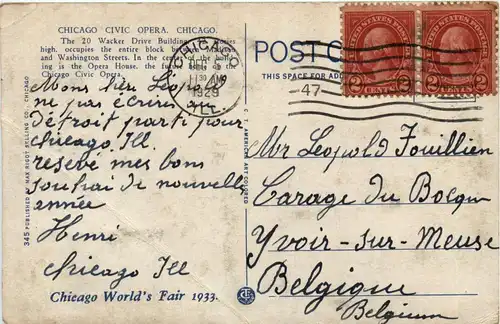 CHICAGO CIVIC OPERA, CHICAGO.
The 20 Wacker Drive Building, stories
high, occupies the entire block between Madison
and Washington Streets. In the center of the build-
ing is the Opera House, the future home of the
Chicago Civic Opera.
POST C
THIS SPACE FOR AD
UNITED STATES POSTAGE
2 CENTS 2
UNITED STATES POSTAGE
2 CENTS 2
CHICAGO
30
1929
ILL.
47
Mons cher Léopold
ne pas écrire a
détroit parti pour
chicago Ill.
resevé mes bons
souhai de nouvelle
année
Henri
Chicago Ill
Chicago World's Fair 1933.
345 PUBLISHED BY MAX RIGOT SELLING CO., CHICAGO
C. T. AMERICAN ART COLORED
Mr Leopold Fouillien
Garage du Bocq
Yvoir-sur-Meuse
Belgique
Belgium